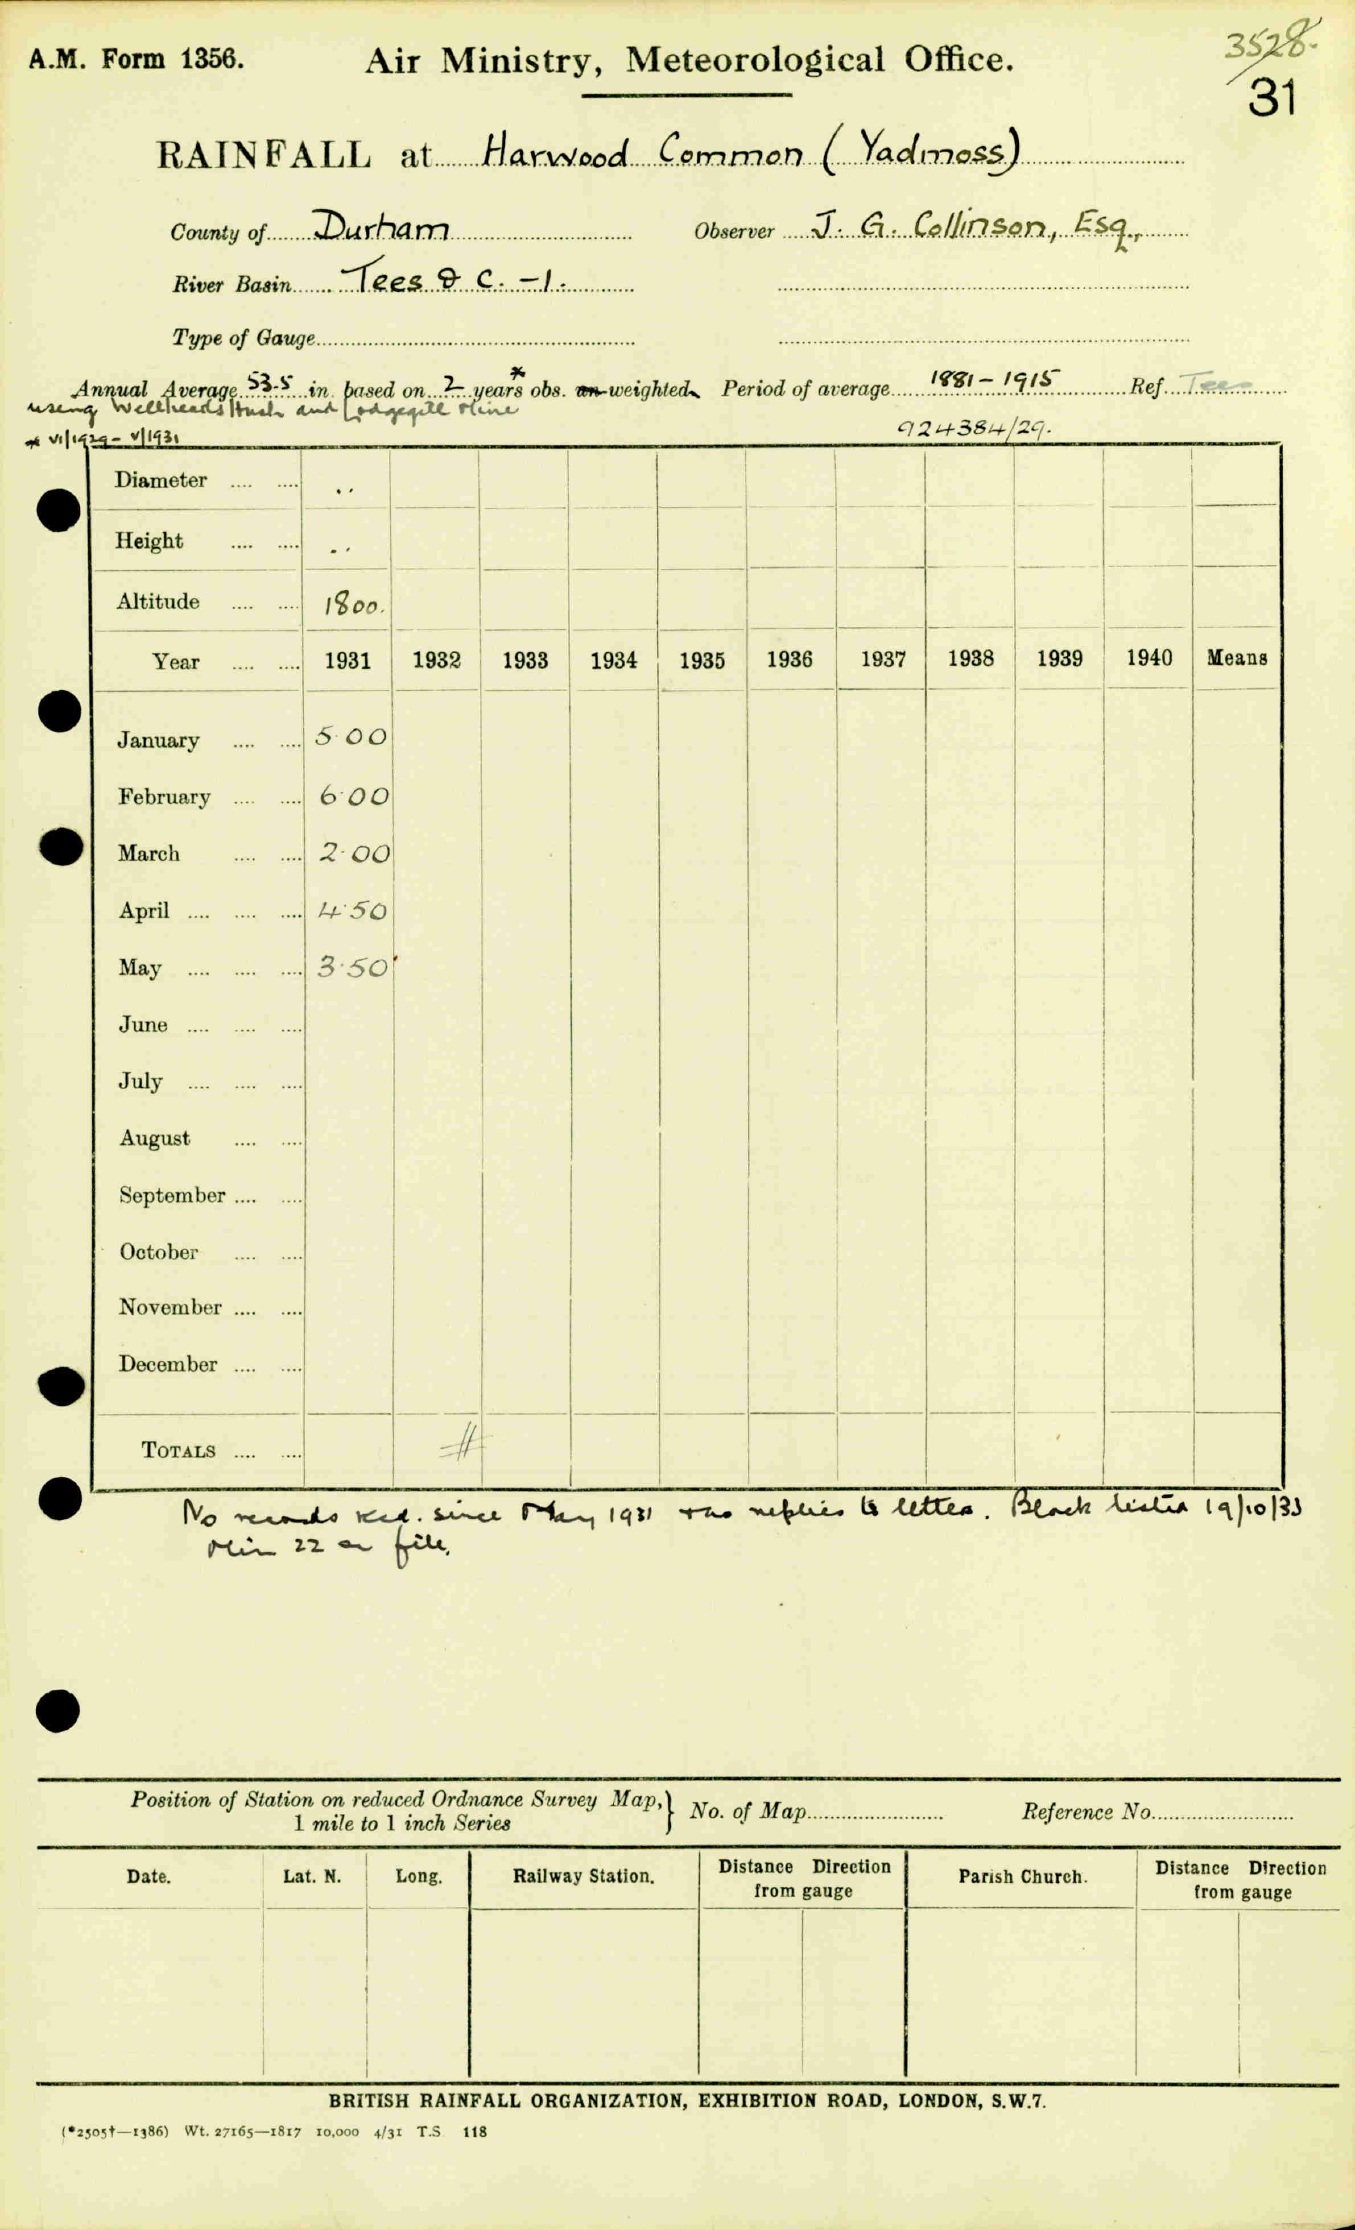 A.M. Form 1356. Air Ministry, Meteorological Office. 3528.
31
RAINFALL at Harwood Common (Yadmoss)
County of Durham Observer J. G. Collinson, Esq.,
River Basin Tees & C. -1.
Type of Gauge
Annual Average 53.5 in. based on 2 years* obs. un-weighted. Period of average 1881-1915 Ref. Tees
using Wellheads Hush and Lodgegill Mine
* VI/1929 - V/1931 924384/29.
Diameter .... .... ..
Height .... .... ..
Altitude .... .... 1800.
Year .... .... 1931 1932 1933 1934 1935 1936 1937 1938 1939 1940 Means
January .... .... 5.00
February .... .... 6.00
March .... .... 2.00
April .... .... .... 4.50
May .... .... .... 3.50
June .... .... ....
July .... .... ....
August .... ....
September .... ....
October .... ....
November .... ....
December .... ....
TOTALS .... ....
No records recd. since May 1931 & no replies to letters. Black listed 19/10/33
Min 22 on file.
Position of Station on reduced Ordnance Survey Map, } No. of Map Reference No.
1 mile to 1 inch Series
Date. Lat. N. Long. Railway Station. Distance Direction from gauge Parish Church. Distance Direction from gauge
BRITISH RAINFALL ORGANIZATION, EXHIBITION ROAD, LONDON, S.W.7.
(*2505†—1386) Wt. 27165—1817 10,000 4/31 T.S. 118